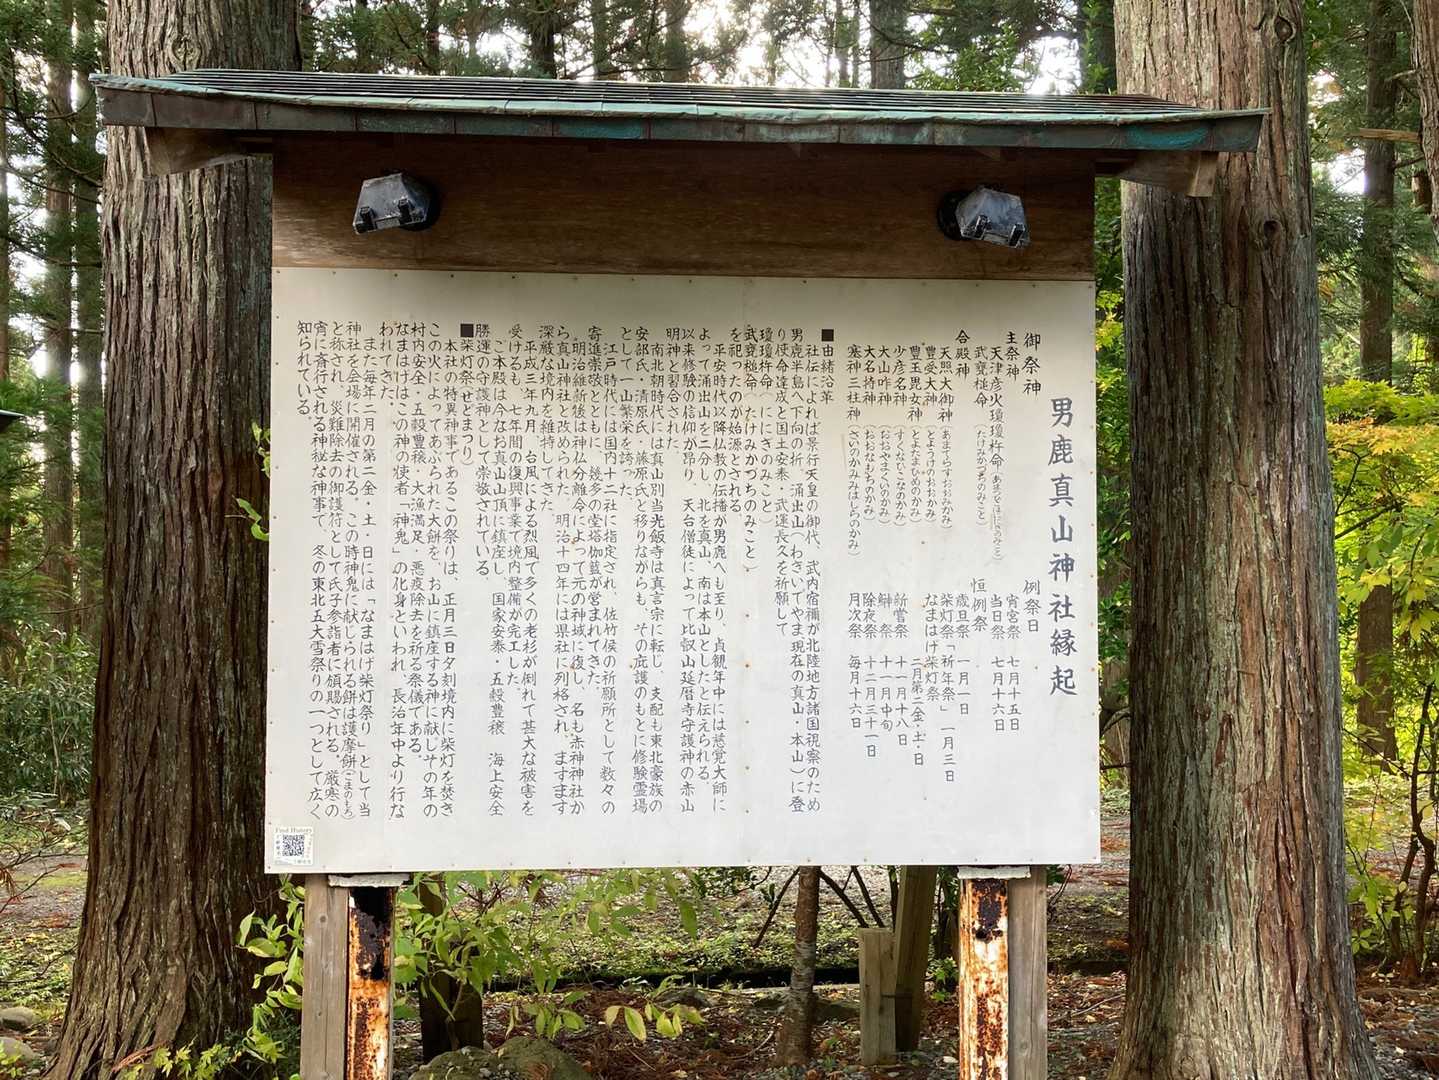 男鹿真山神社縁起
御祭神
主祭神
天津彦火瓊瓊杵命
武甕槌命（たけみかづちのみこと）
合殿神
天照大御神（あまてらすおおみかみ）
豊受大神（とようけのおおかみ）
豊玉毘女神（とよたまひめのかみ）
少彦名神（すくなひこなのかみ）
大山咋神（おおやまくいのかみ）
大名持神（おおなもちのかみ）
塞神三柱神（さいのかみみはしらのかみ）
例祭日
宵宮祭 七月十五日
当日祭 七月十六日
恒例祭
歳旦祭 一月一日
柴灯祭「祈年祭」 一月三日
なまはげ柴灯祭
二月第二金・土・日
新嘗祭 十一月十八日
鰰祭 十一月中旬
除夜祭 十二月三十一日
月次祭 毎月十六日
■由緒沿革
社伝によれば景行天皇の御代、武内宿禰が北陸地方諸国視察のため
男鹿半島へ下向の折、涌出山（わきいでやま現在の真山・本山）に登
り使命達成と国土安泰・武運長久を祈願して
瓊瓊杵命（ににぎのみこと）
武甕槌命（たけみかづちのみこと）
を祀ったのが始源とされる。
平安時代以降仏教の伝播が男鹿へも至り、貞観年中には慈覚大師に
よって涌出山を二分し、北を真山、南は本山としたと伝えられる。
以来修験の信仰が昂り、天台僧徒によって比叡山延暦寺守護神の赤山
明神と習合された。
南北朝時代には真山別当光飯寺は真言宗に転じ、支配も東北豪族の
安部氏・清原氏・藤原氏と移りながらも、その庇護のもとに修験霊場
として一山繁栄を誇った。
江戸時代には国内十二社に指定され、佐竹侯の祈願所として数々の
寄進崇敬とともに、幾多の堂塔伽藍が営まれてきた。
明治維新後は神仏分離令によって元の神域に復し、名も赤神神社か
ら真山神社と改められた。明治十四年には県社に列格され、ますます
深厳な境内を維持してきた。
平成三年九月、台風による烈風で多くの老杉が倒れて甚大な被害を
受けるも、七年間の復興事業で境内整備が完工した。
ご本殿は今なお真山山頂に鎮座し、国家安泰・五穀豊穣 海上安全
勝運の守護神として崇敬されている。
■柴灯祭（せどまつり）
本社の特異神事であるこの祭りは、正月三日夕刻境内に柴灯を焚き
この火によってあぶられた大餅を、お山に鎮座する神に献じその年の
村内安全・五穀豊穣・大漁満足・悪疫除去を祈る祭儀である。
なまはげはこの神の使者「神鬼」の化身といわれ、長治年中より行な
われてきた。
また毎年二月の第二金・土・日には「なまはげ柴灯祭り」として当
神社を会場に開催される。この時神鬼に献じられる餅は護摩餅（ごまのもち）
と称され、災難除去の御護符として氏子参詣者に頒賜される。厳寒の
宵に斎行される神秘な神事で、冬の東北五大雪祭りの一つとして広く
知られている。
Find History